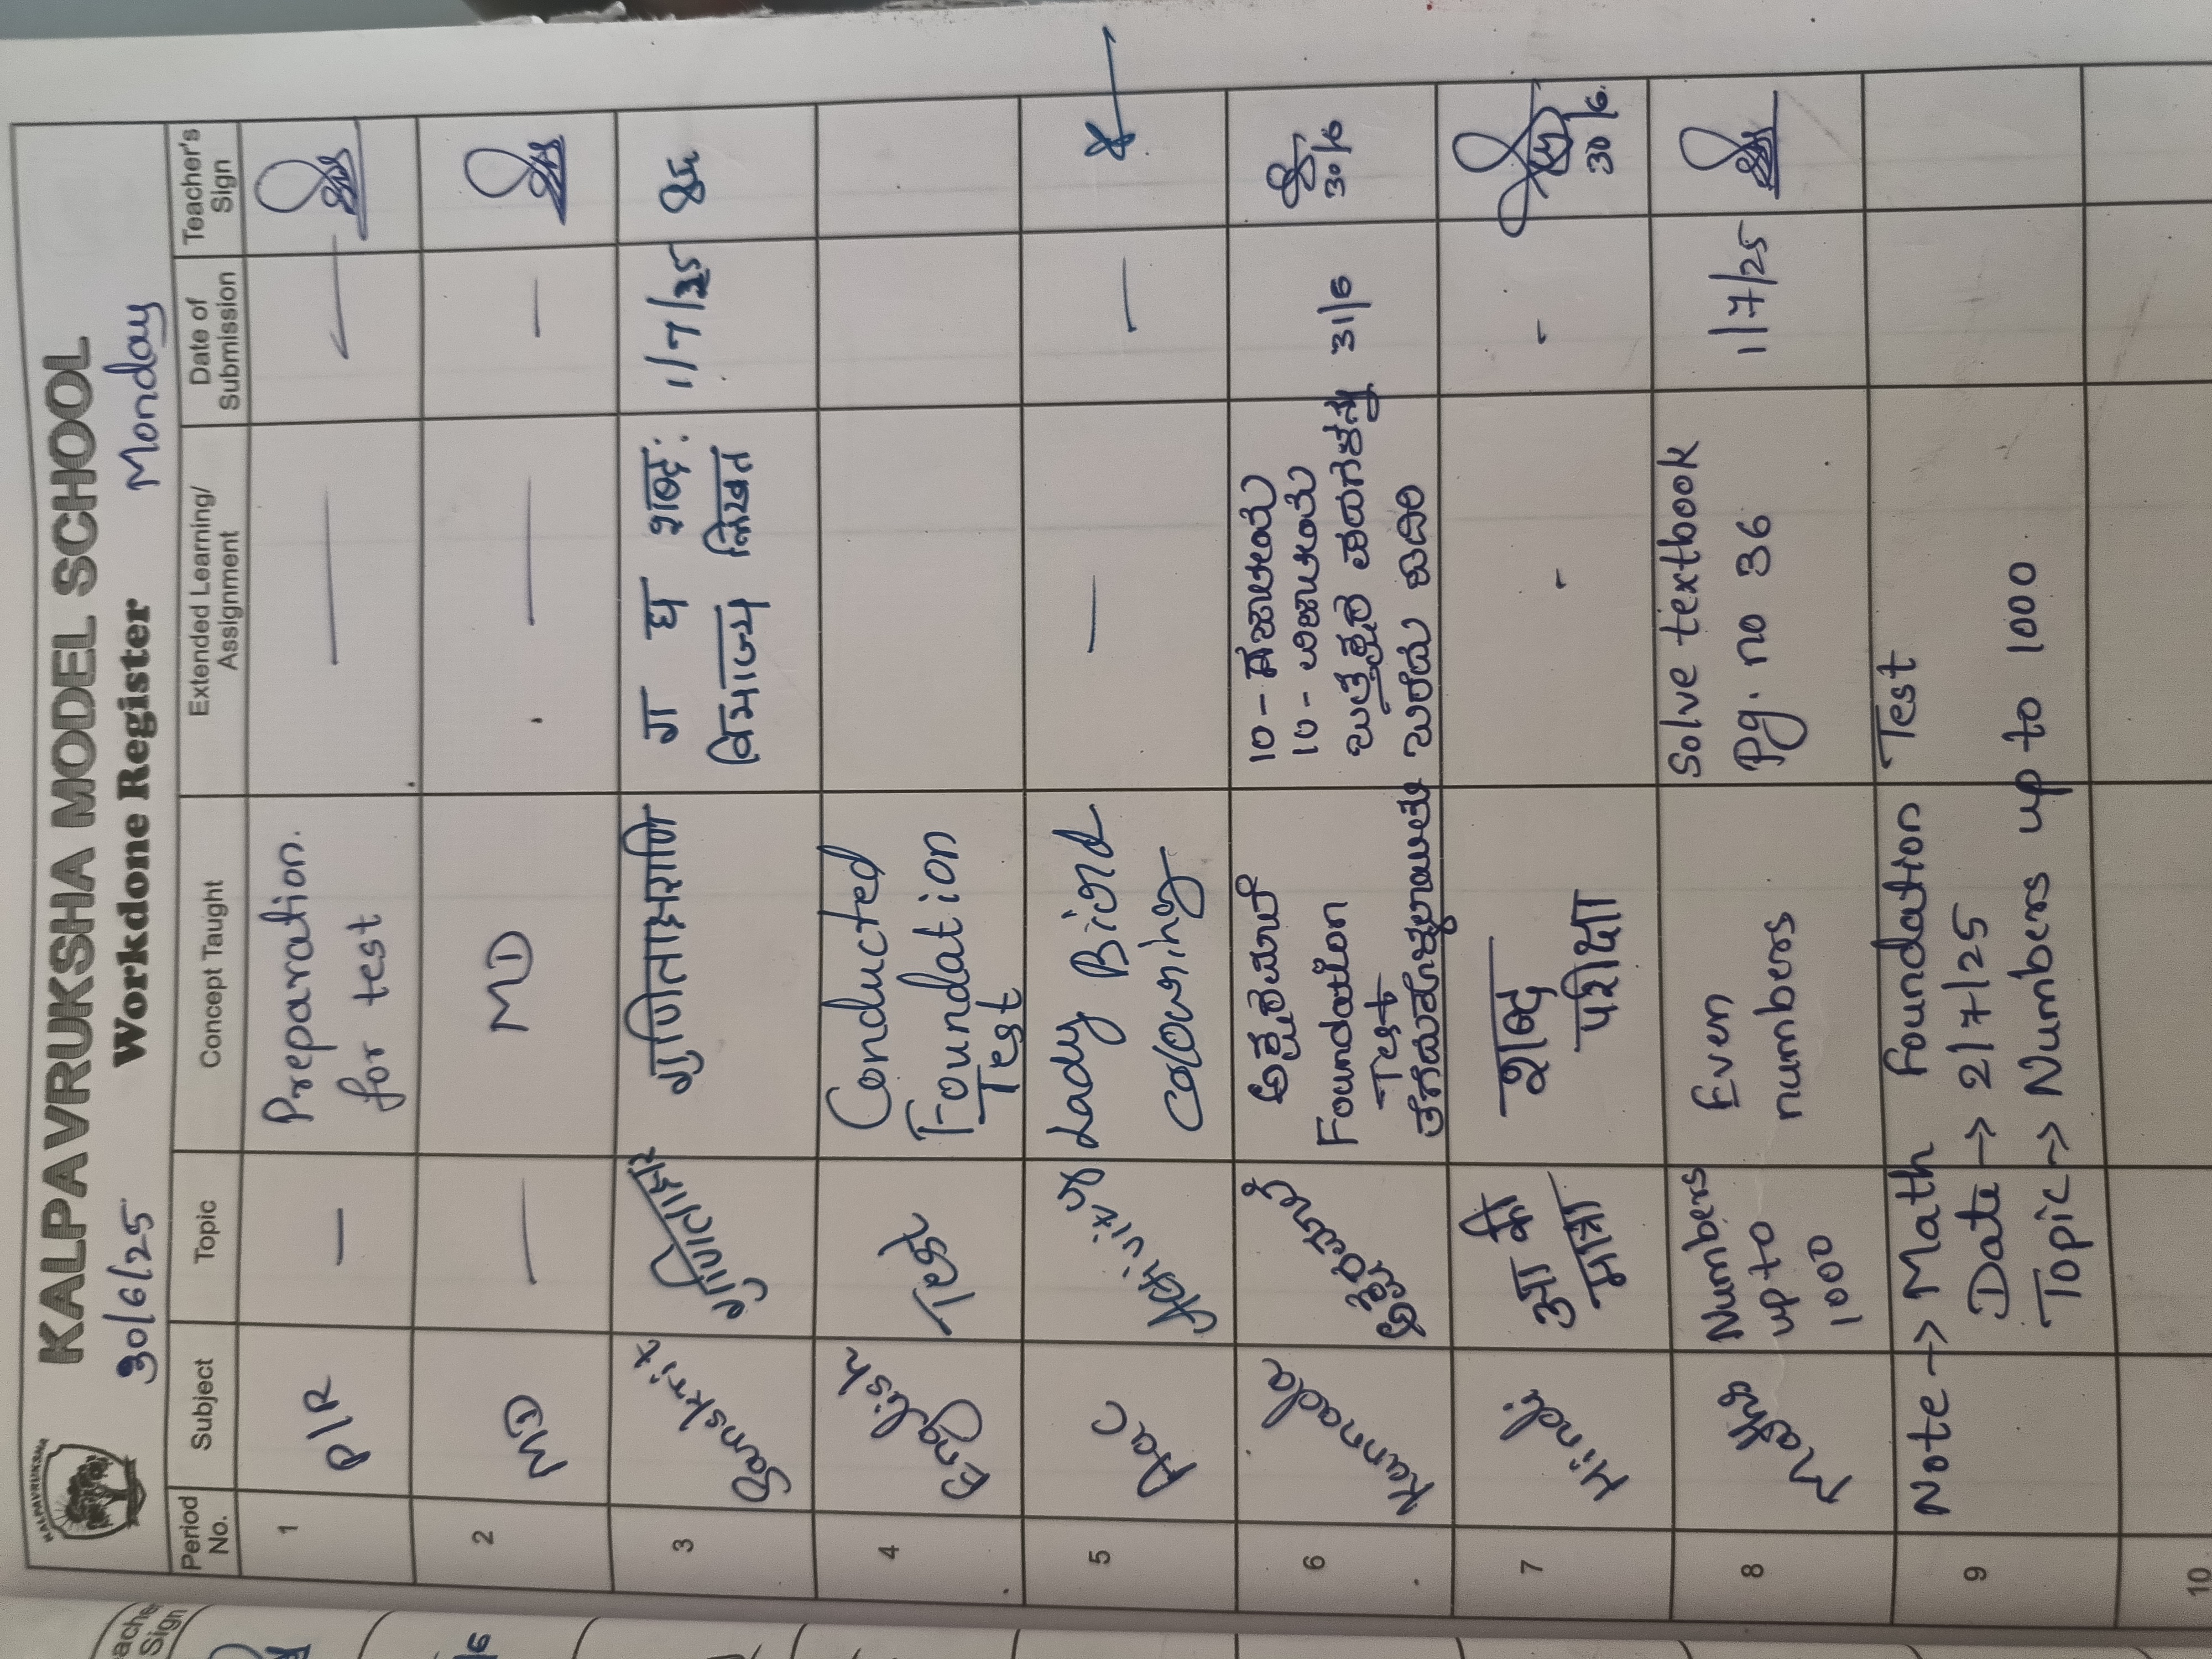 KALPAVRUKSHA
KALPAVRUKSHA MODEL SCHOOL
30/6/25 Workdone Register Monday
Period No. Subject Topic Concept Taught Extended Learning/ Assignment Date of Submission Teacher's Sign
1 P/R — Preparation. — —
for test
2 MD — MD — —
3 Sanskrit गुणिताक्षर गुणिताक्षराणि ग घ शब्द: 1/7/25
विभाज्य लिखत
4 English Test Conducted
Foundation
Test
5 Aac Activity Lady Bird — —
colouring
6 Kannada ಅಕ್ಷರಮಾಲೆ ಅಕ್ಷರಮಾಲೆ 10 - ಸಜಾತಿಯ 31/6 30/6
Foundation 10 - ವಿಜಾತಿಯ
Test ಒತ್ತಕ್ಷರ ಪದಗಳನ್ನು
ತೆಗೆದುಕೊಳ್ಳಲಾಯಿತು ಬರೆದು ಓದಿರಿ
7 Hindi आ की शब्द - - 30/6.
मात्रा परीक्षा
8 Maths Numbers Even Solve textbook 1/7/25
up to numbers Pg. no 36
1000
9 Note → Math Foundation Test
Date → 2/7/25
Topic → Numbers up to 1000
10
Teacher's
Sign